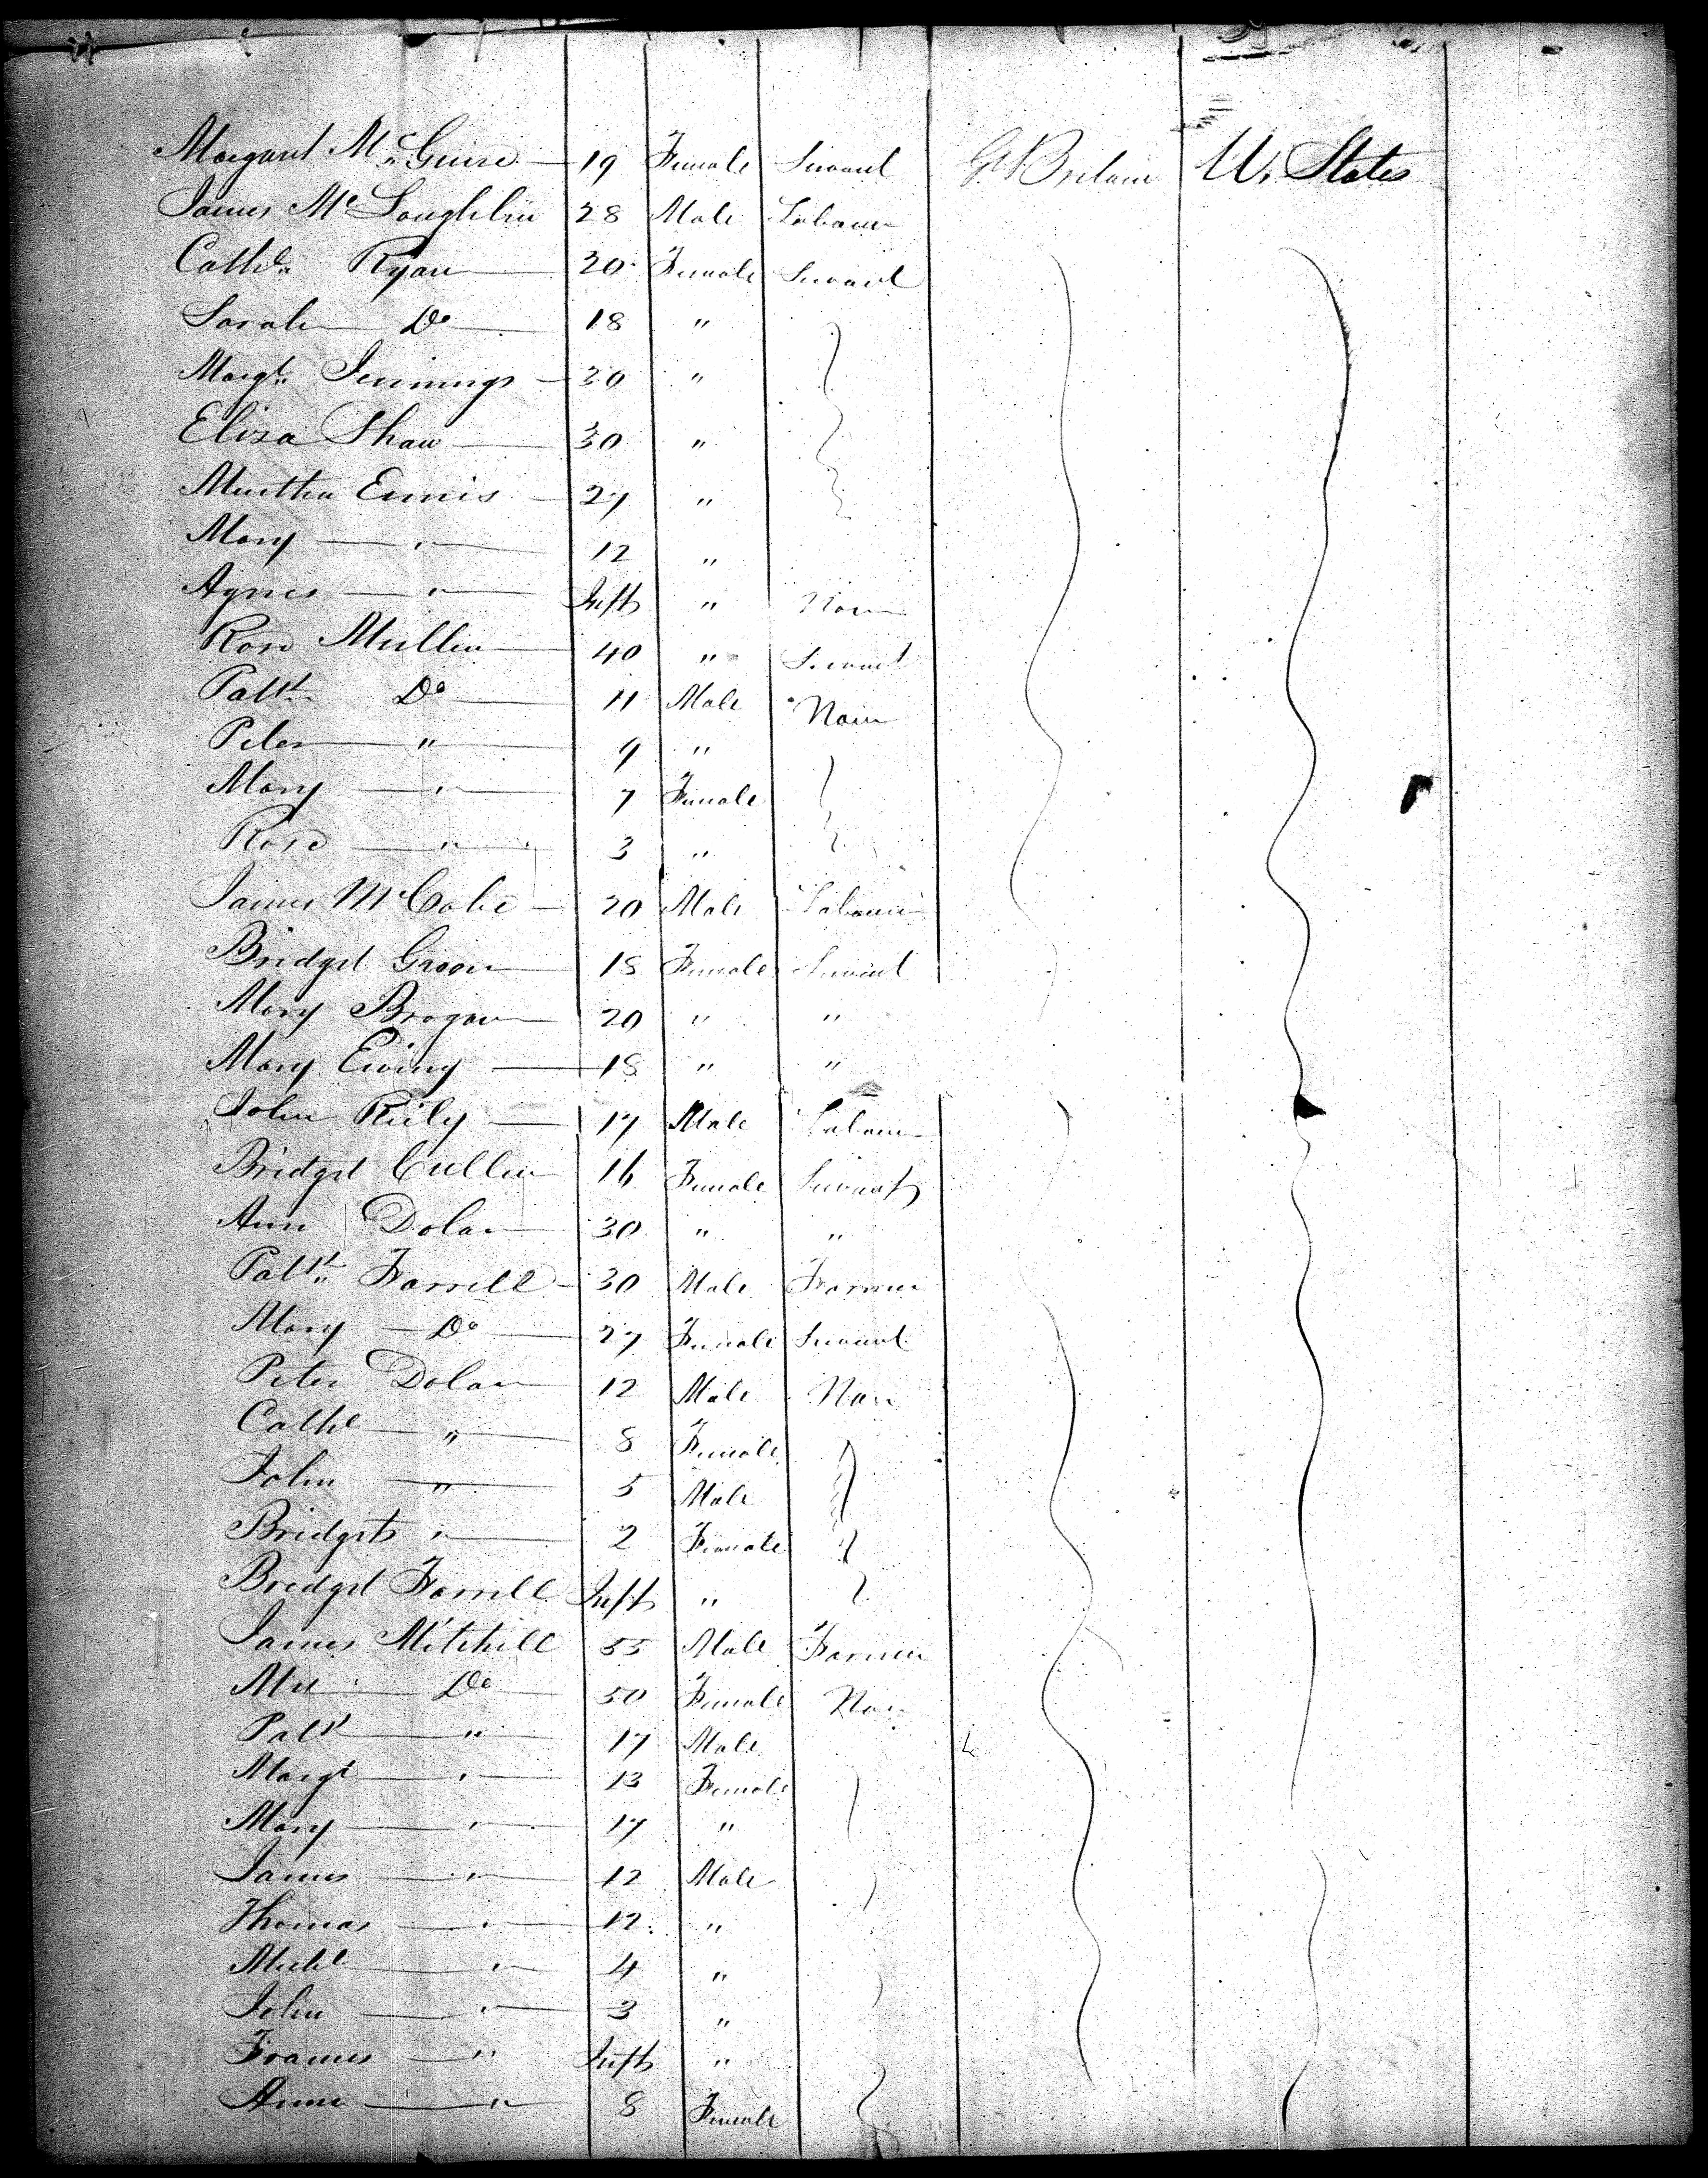 Margaret McGuire 19 Female Servant Gt Britain U. States
James McLoughlin 28 Male Labourer
Cathe Ryan 20 Female Servant
Sarah Do 18 "
Margt Jennings 30 "
Eliza Shaw 30 "
Martha Ennis 27 "
Mary " 12 "
Agnes " Inft " None
Rose Mullen 40 " Servant
Patk Do 11 Male None
Peter " 9 "
Mary " 7 Female
Rose " 3 "
James McCabe 20 Male Labourer
Bridget Green 18 Female Servant
Mary Brogan 20 " "
Mary Ewing 18 " "
John Riely 17 Male Labourer
Bridget Cullen 16 Female Servant
Ann Dolan 30 " "
Patk Farrell 30 Male Farmer
Mary Do 27 Female Servant
Peter Dolan 12 Male None
Cathe " 8 Female
John " 5 Male
Bridget " 2 Female
Bridget Farrell Inft "
James Mitchell 55 Male Farmer
Do 50 Female None
Patk " 17 Male
Margt " 13 Female
Mary " 17 "
James " 12 Male
Thomas " 12 "
Michl " 4 "
John " 3 "
Frances " Inft "
Anne " 8 Female